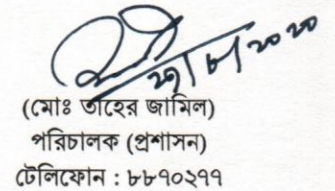 (মোঃ তাহের জামিল)
পরিচালক (প্রশাসন)
টেলিফোন : ৮৮৭০২৭৭